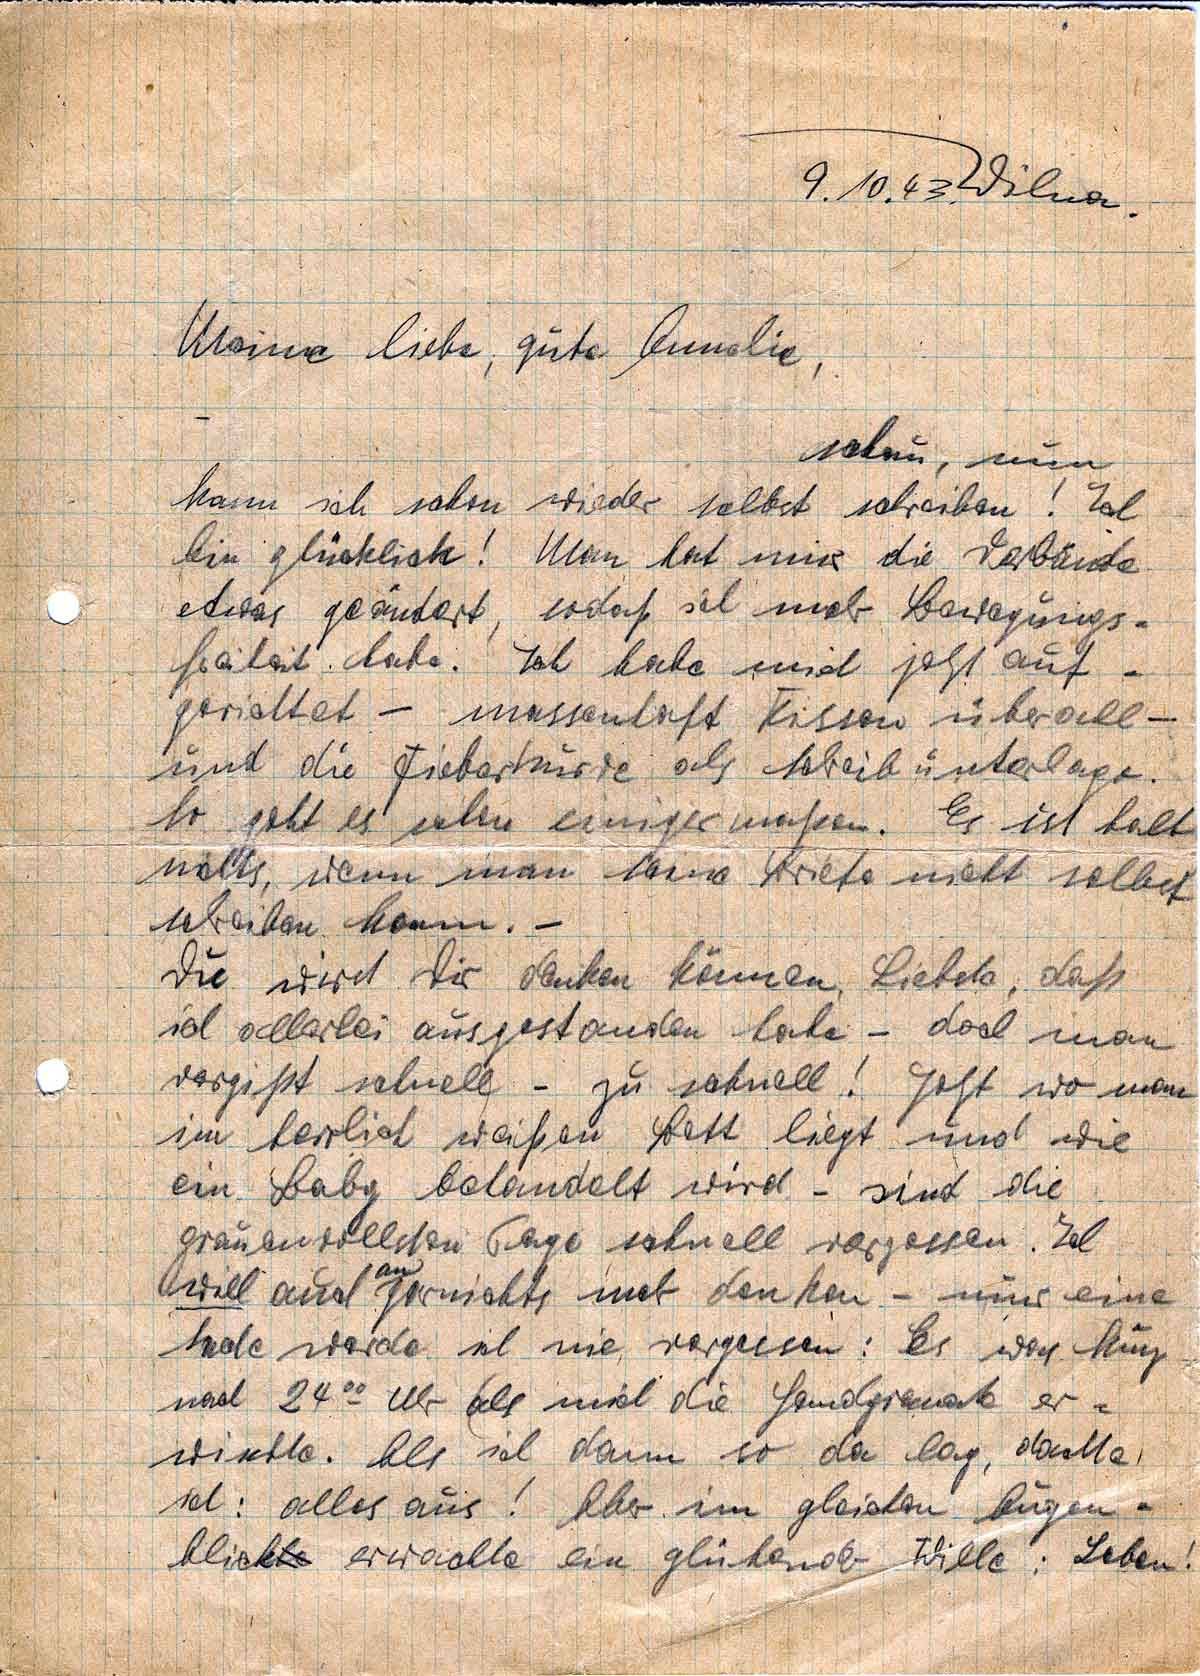 9.10.43. Wilna.
Meine liebe, gute Annelie,
schau, nun
kann ich schon wieder selbst schreiben! Ich
bin glücklich! Man hat mir die Verbände
etwas geändert, sodaß ich mehr Bewegungs-
freiheit habe. Ich habe mich jetzt auf-
gerichtet – massenhaft Kissen überall –
und die Fieberkurve als Schreibunterlage.
So geht es schon einigermaßen. Es ist halt
nichts, wenn man seine Briefe nicht selbst
schreiben kann. –
Du wirst Dir denken können, Liebste, daß
ich allerlei ausgestanden habe – doch man
vergißt schnell – zu schnell! Jetzt wo man
im herrlich weißen Bett liegt und wie
ein Baby behandelt wird – sind die
grauenvollsten Tage schnell vergessen. Ich
will auch an garnichts mehr denken – nur eine
werde ich nie vergessen: Es war kurz
nach 24⁰⁰ Uhr als mich die Handgranate er-
wischte. Als ich dann so da lag, dachte
ich: alles aus! Aber im gleichen Augen-
blick erwachte ein glühender Wille: Leben!